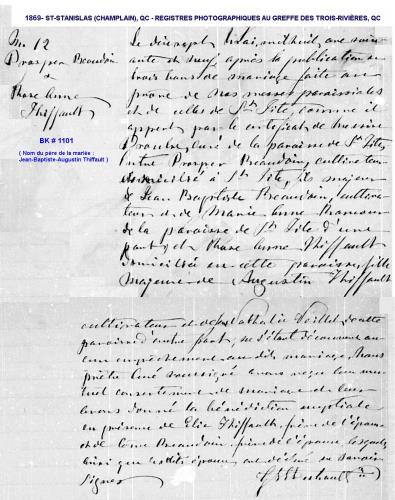 1869- ST-STANISLAS (CHAMPLAIN), QC - REGISTRES PHOTOGRAPHIQUES AU GREFFE DES TROIS-RIVIÈRES, QC
No. 12
Prosper Beaudoin
&
Phase Anne
Thiffault
BK # 1101
( Nom du père de la mariée :
Jean-Baptiste-Augustin Thiffault )
Le dix sept mil huit cent soix
ante et neuf, après la publication de
trois bans de mariage faite au
prône de nos messes paroissiales
et de celles de St. Tite, comme il
appert par le certificat de messire
curé de la paroisse de St. Tite,
Entre Prosper Beaudoin, cultivateur
domicilié à St. Tite, fils majeur
de Jean Baptiste Beaudoin, cultiva
teur et de Marie Anne
de la paroisse de St. Tite d'une
part, et Phase Anne Thiffault
domiciliée en cette paroisse, fille
majeure de Augustin Thiffault
cultivateur et de Nathalie Veillet de cette
paroisse d'autre part, ne s'étant découvert au
cun empêchement au dit mariage, Nous
prêtre curé soussigné avons reçu leur mu
tuel consentement de mariage et leur
avons donné la bénédiction nuptiale
en présence de Elie Thiffault, frère de l'épouse
et de Beaudoin, frère de l'époux, lesquels
ainsi que les dits époux ont déclaré ne savoir
signer